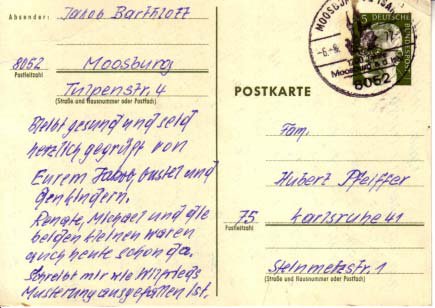 Absender: Jakob Barthlott
8052 Moosburg
Postleitzahl
Tulpenstr. 4
(Straße und Hausnummer oder Postfach)
Bleibt gesund und seid
herzlich gegrüßt von
Eurem Jakob, und
Renate, Michael und die
beiden kleinen waren
auch heute schon da.
Schreibt mir wie Wilfrieds
Musterung ausgefallen ist.
MOOSBURG
8052
POSTKARTE
Fam.
Hubert Pfeiffer
75 Karlsruhe 41
Postleitzahl
Steinmetzstr. 1
(Straße und Hausnummer oder Postfach)